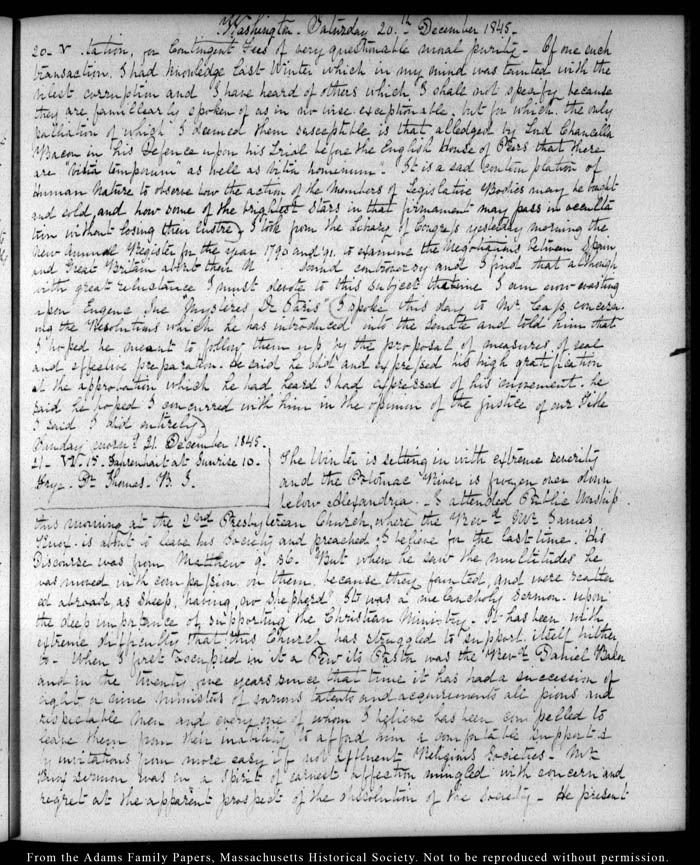 Washington. Saturday 20th December 1845.
20. V tation, or Contingent Fees of very questionable moral purity. Of one such
transaction, I had knowledge last Winter which in my mind was tainted with the
vilest corruption and I have heard of others which I shall not specify because
they are familiarly spoken of as in no wise exceptionable, but for which the only
palliation of which I deemed them susceptible is that alledged by Lord Chancellor
Bacon in his Defence upon his trial before the English House of Peers that there
are "vitia temporum" as well as vitia hominum. It is a sad contemplation of
human Nature to observe how the action of the Members of Legislative Bodies may be bought
and sold, and how some of the brightest stars in that firmament may pass in occulta
tion without losing their lustre. I took from the Library of Congress yesterday morning the
New annual Register for the year 1790 and 91. to examine the Negotiations between Spain
and Great Britain about their Sound controversy and I find that although
with great reluctance I must devote to this subject the time I am now wasting
upon Eugene Sue "Mystères De Paris" I spoke this day to Mr Cass concern-
ing the Resolutions which he has introduced into the Senate and told him that
I hoped he meant to follow them up by the proposal of measures of real
and effective preparation. He said he did and expressed his high gratification
at the approbation which he had heard I had expressed of his movement. he
said he hoped I concurred with him in the opinion of the justice of our Title
I said I did entirely
Sunday morng 21. December 1845.
21. VI. 15. Fahrenheit at Sunrise 10.
Frye. Dr Thomas. B. J.
The Winter is setting in with extreme severity
and the Potomac River is frozen over down
below Alexandria. I attended Public Worship
this morning at the 2nd Presbyterean Church, where the Revd Mr James
Knox is about to leave his Society and preached I believe for the last time. His
Discourse was from Matthew 9. 36. "But when he saw the multitudes he
was moved with compassion on them, because they fainted, and were scatter
ed abroad, as sheep, having no Shepherd". It was a melancholy Sermon upon
the deep importance of supporting the Christian Ministry. It has been with
extreme difficulty that this Church has struggled to support itself hither
to. When I first occupied in it a Pew its Pastor was the Revd Daniel Baker
and in the twenty five years since that time it has had a succession of
eight or nine Ministers of various talents and acquirements all pious and
respectable men and every one of whom I believe has been compelled to
leave them from their inability to afford him a comfortable support
by invitations from more easy if not affluent Religious Societies. Mr
Knox sermon was in a spirit of earnest affection mingled with concern and
regret at the apparent prospect of the dissolution of the society. He present
From the Adams Family Papers, Massachusetts Historical Society. Not to be reproduced without permission.